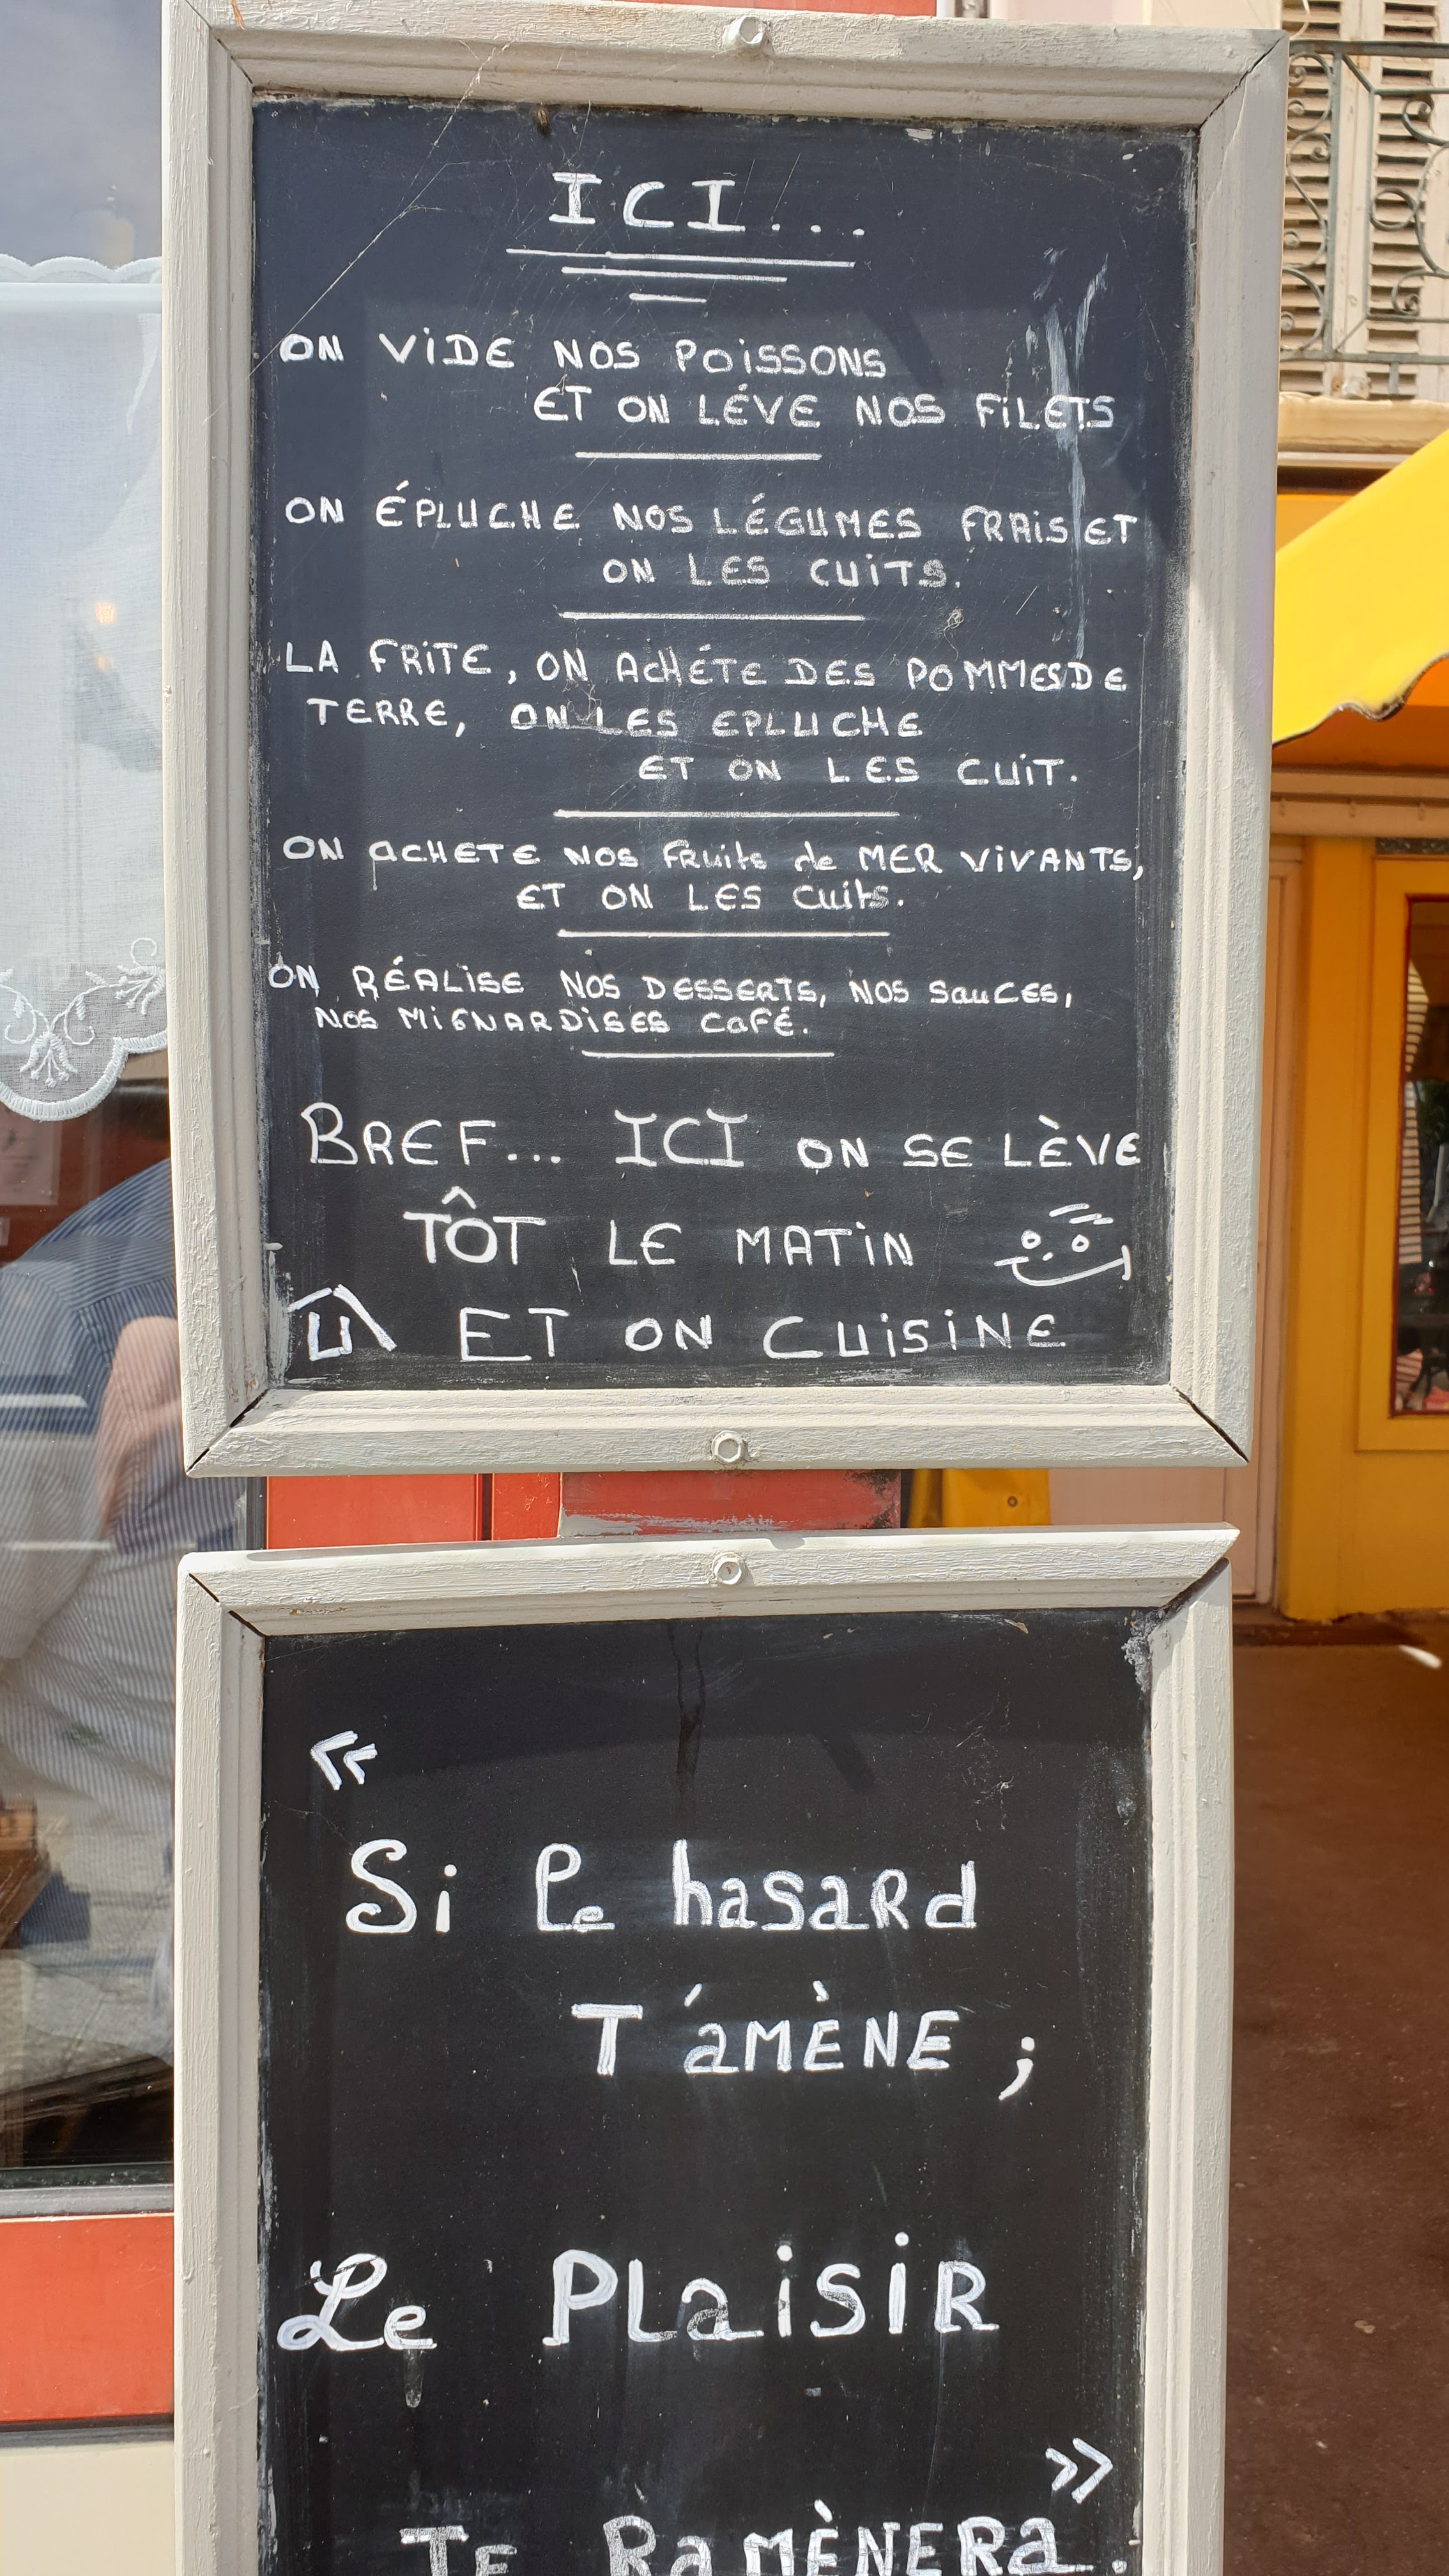 ICI...
ON VIDE NOS POISSONS
ET ON LÉVE NOS FILETS
ON ÉPLUCHE NOS LÉGUMES FRAIS ET
ON LES CUITS.
LA FRITE, ON ACHÉTE DES POMMES DE
TERRE, ON LES EPLUCHE
ET ON LES CUIT.
ON ACHETE NOS FRuits de MER VIVANTS,
ET ON LES Cuits.
ON RÉALISE NOS DESSERTS, NOS SauCES,
NOS MIGNARDISES CaFÉ.
BREF... ICI ON SE LÈVE
TÔT LE MATIN
ET ON CUISINE
«
Si Le hasaRd
T'aMÈNE ;
Le PLaiSiR
»
TE RaMÈNERa.